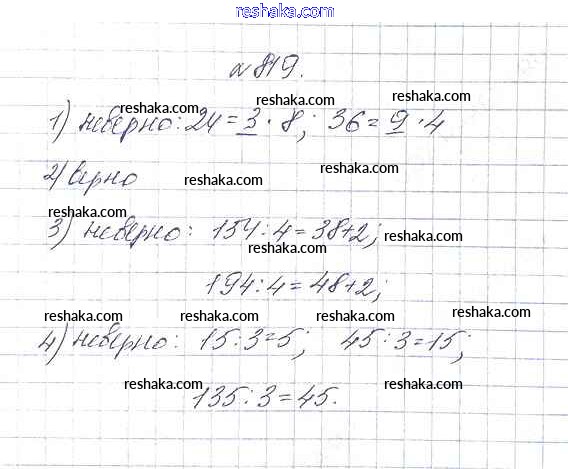 reshaka.com
№ 819.
1) неверно: 24 = 3 · 8; 36 = 9 · 4
2) верно
3) неверно: 154 : 4 = 38+2;
194 : 4 = 48+2;
4) неверно: 15 : 3 = 5; 45 : 3 = 15;
135 : 3 = 45.
reshaka.com
reshaka.com
reshaka.com
reshaka.com
reshaka.com
reshaka.com
reshaka.com
reshaka.com
reshaka.com
reshaka.com
reshaka.com
reshaka.com
reshaka.com
reshaka.com